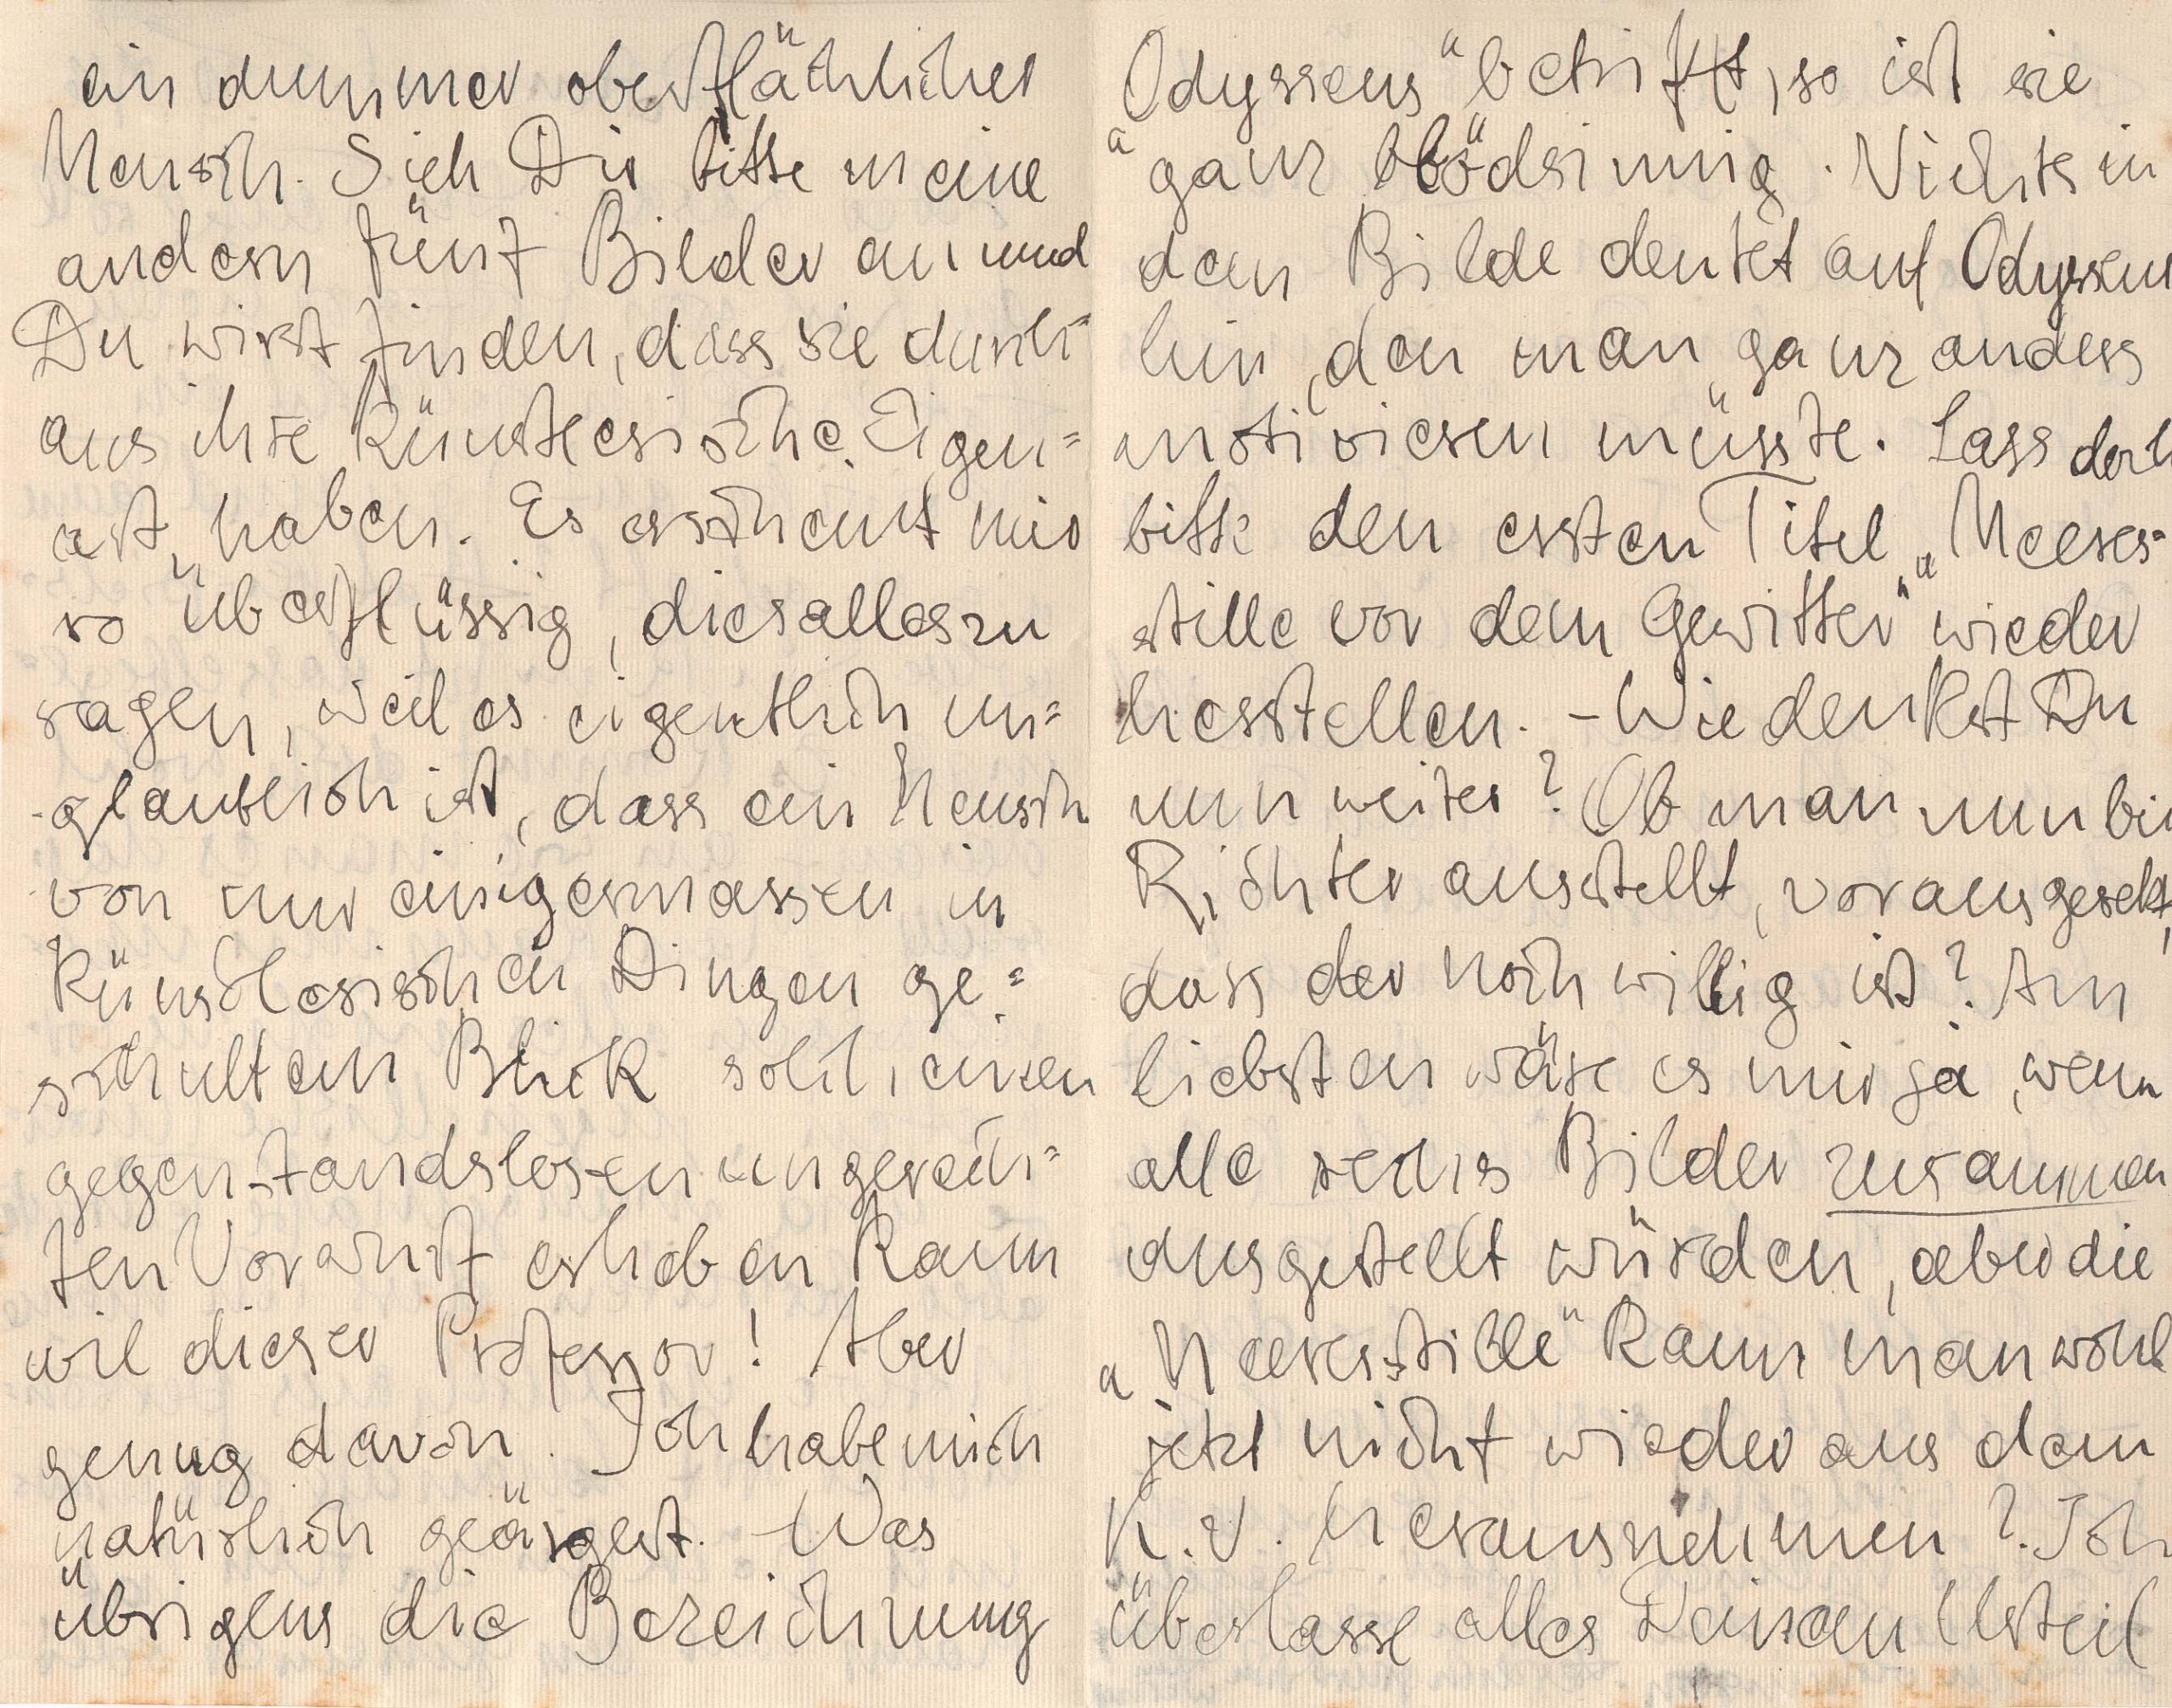 ein dummer oberflächlicher
Mensch. Sieh Dir bitte meine
andern fünf Bilder an und
Du wirst finden, dass sie durch=
aus ihre künstlerische Eigen=
art haben. Es erscheint mir
so überflüssig, dies alles zu
sagen, weil es eigentlich un=
glaublich ist, dass ein Mensch
von nur einigermassen in
künstlerischen Dingen ge=
schultem Blick solch, einen
gegenstandslosen ungerech=
ten Vorwurf erheben kann
wie dieser Professor! Aber
genug davon. Ich habe mich
natürlich geärgert. Was
übrigens die Bezeichnung
Odysseus" betrifft, so ist sie
"ganz blödsinnig. Nichts in
dem Bilde deutet auf Odysseus
hin, den man ganz anders
motivieren müsste. Lass doch
bitte den ersten Titel „Meeres=
stille vor dem Gewitter" wieder
herstellen. – Wie denkst Du
nun weiter? Ob man nun bei
Richter ausstellt, vorausgesetzt,
dass der noch willig ist? Am
liebsten wäre es mir ja, wenn
alle sechs Bilder zusammen
ausgestellt würden, aber die
„Meeresstille" kann man wohl
jetzt nicht wieder aus dem
K.V. herausnehmen? Ich
überlasse alles Deinem Urteil